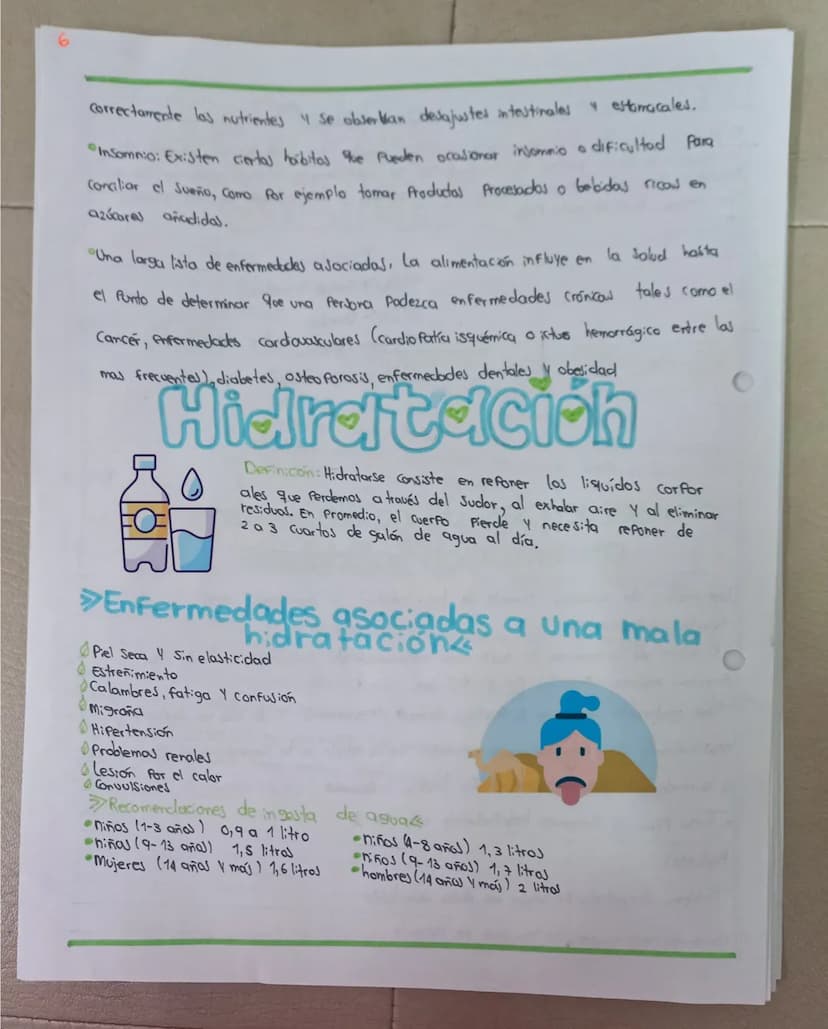 6
correctamente los nutrientes y se observan desajustes intestinales y estomacales.
Insomnio: Existen ciertos hábitos que pueden ocasionar insomnio o dificultad para
conciliar el sueño, como por ejemplo tomar Productos Procesados o bebidas ricas en
azúcares añadidos.
Una larga lista de enfermedades asociadas, La alimentación influye en la salud hasta
el punto de determinar que una persona padezca enfermedades crónicas tales como el
Cancér, enfermedades cardovasculares (cardiopatía isquémica o ictus hemorrágico entre las
mas frecuentes), diabetes, osteoporosis, enfermedades dentales y obesidad
Hidratación
Definición: Hidratarse consiste en reponer los liquídos corpor
ales que perdemos a través del sudor, al exhalar aire y al eliminar
residuos. En promedio, el cuerpo pierde y necesita reponer de
2 a 3 cuartos de galón de agua al día.
>Enfermedades asociadas a una mala
hidratación<
Piel seca y sin elasticidad
Estreñimiento
Calambres, fatiga y confusión
Migraña
Hipertensión
Problemas renales
Lesión por el calor
Convulsiones
>Recomendaciones de ingesta de agua<
niños (1-3 años) 0,9 a 1 litro
niños (4-8 años) 1,3 litros
niñas (9-13 años) 1,5 litros
niños (9-13 años) 1,7 litros
Mujeres (14 años y más) 1,6 litros
hombres (14 años y más) 2 litros